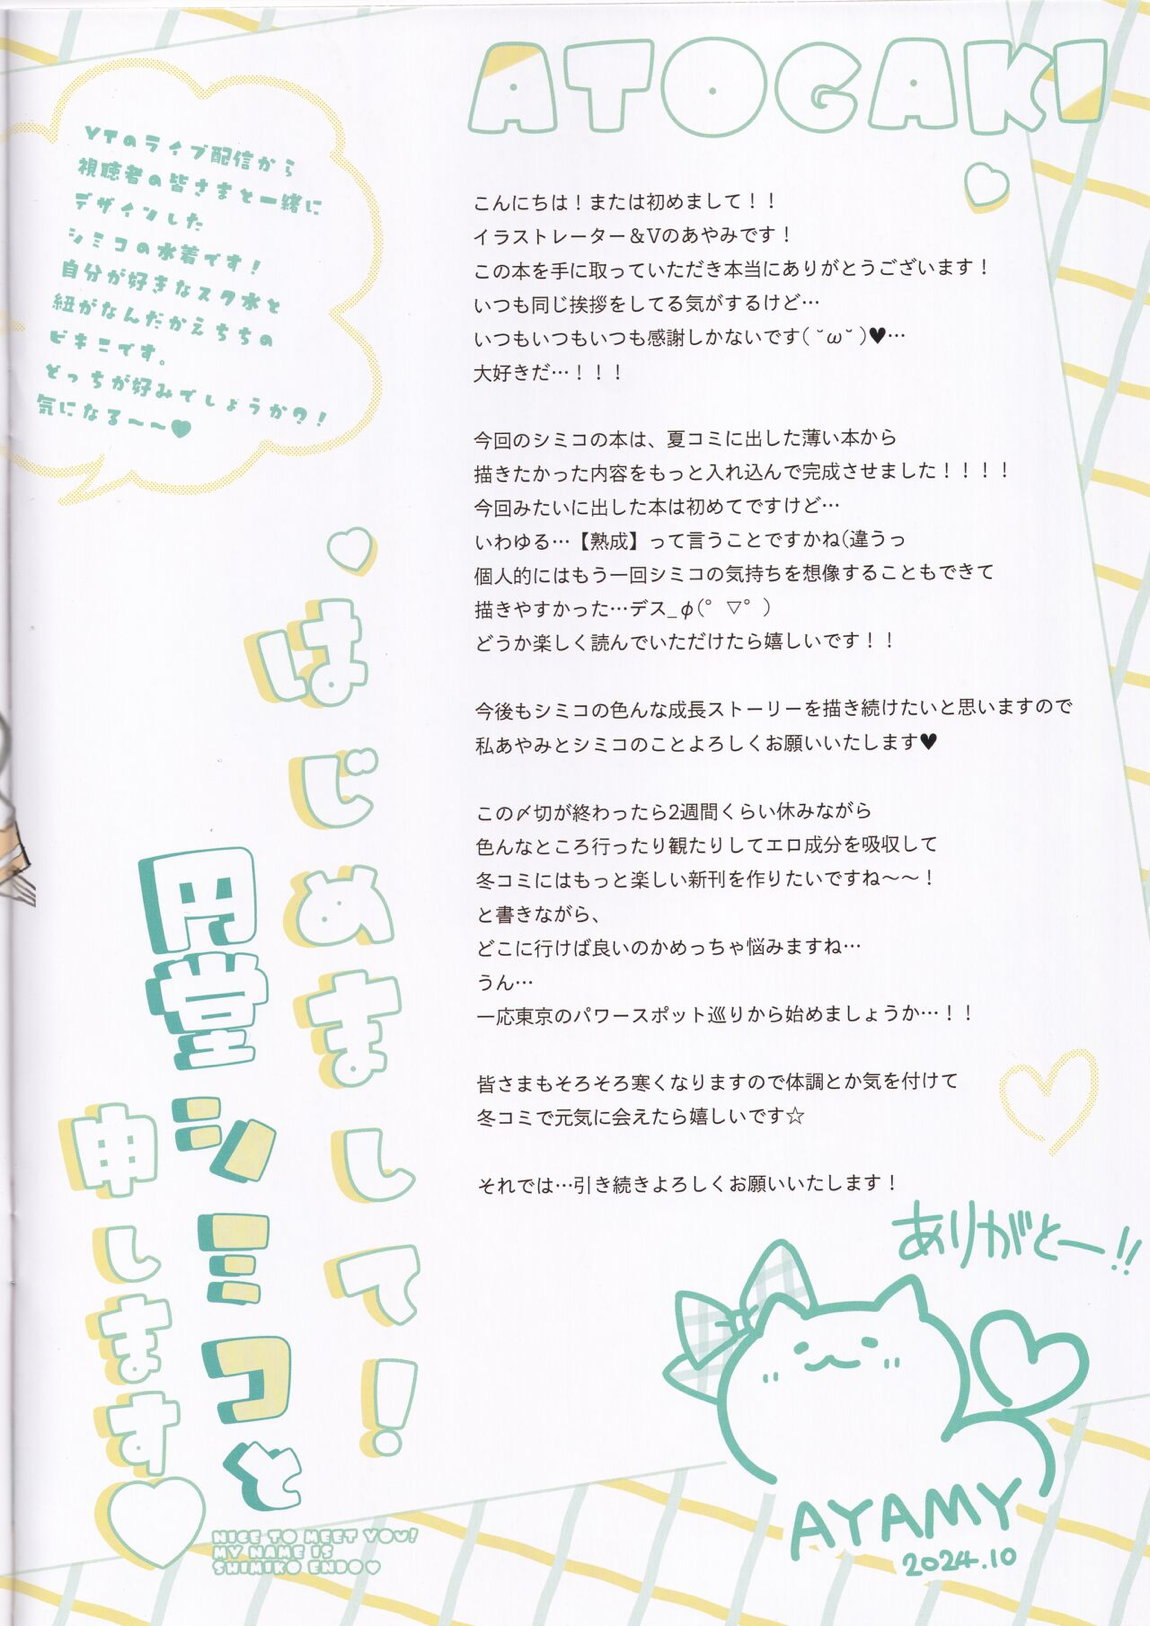 ATOGAKI
YTのライブ配信から
視聴者の皆さまと一緒に
デザインした
シミコの水着です!
自分が好きなスク水と
紐がなんだかえちちの
ビキニです。
どっちが好みでしょうか?!
気になる〜〜♥
こんにちは！または初めまして！！
イラストレーター＆Vのあやみです！
この本を手に取っていただき本当にありがとうございます！
いつも同じ挨拶をしてる気がするけど…
いつもいつもいつも感謝しかないです( ˘ω˘ )♥…
大好きだ…！！！
今回のシミコの本は、夏コミに出した薄い本から
描きたかった内容をもっと入れ込んで完成させました！！！！
今回みたいに出した本は初めてですけど…
いわゆる…【熟成】って言うことですかね(違うっ
個人的にはもう一回シミコの気持ちを想像することもできて
描きやすかった…デス_φ(ﾟ▽ﾟ)
どうか楽しく読んでいただけたら嬉しいです！！
今後もシミコの色んな成長ストーリーを描き続けたいと思いますので
私あやみとシミコのことよろしくお願いいたします♥
この〆切が終わったら2週間くらい休みながら
色んなところ行ったり観たりしてエロ成分を吸収して
冬コミにはもっと楽しい新刊を作りたいですね〜〜！
と書きながら、
どこに行けば良いのかめっちゃ悩みますね…
うん…
一応東京のパワースポット巡りから始めましょうか…！！
皆さまもそろそろ寒くなりますので体調とか気を付けて
冬コミで元気に会えたら嬉しいです☆
それでは…引き続きよろしくお願いいたします！
はじめまして!
円堂シミコと
申します♡
NICE TO MEET YOU!
MY NAME IS
SHIMIKO ENDO♥
ありがとー!!
AYAMY
2024.10